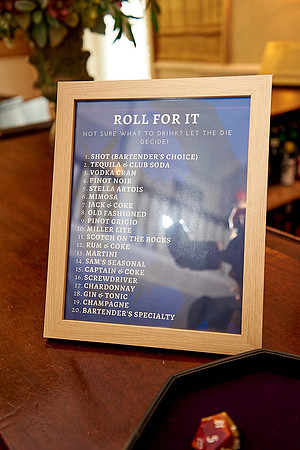 ROLL FOR IT
NOT SURE WHAT TO DRINK? LET THE DIE
DECIDE!
1. SHOT (BARTENDER'S CHOICE)
2. TEQUILA & CLUB SODA
3. VODKA CRAN
4. PINOT NOIR
5. STELLA ARTOIS
6. MIMOSA
7. JACK & COKE
8. OLD FASHIONED
9. PINOT GRIGIO
10. MILLER LITE
11. SCOTCH ON THE ROCKS
12. RUM & COKE
13. MARTINI
14. SAM'S SEASONAL
15. CAPTAIN & COKE
16. SCREWDRIVER
17. CHARDONNAY
18. GIN & TONIC
19. CHAMPAGNE
20. BARTENDER'S SPECIALTY